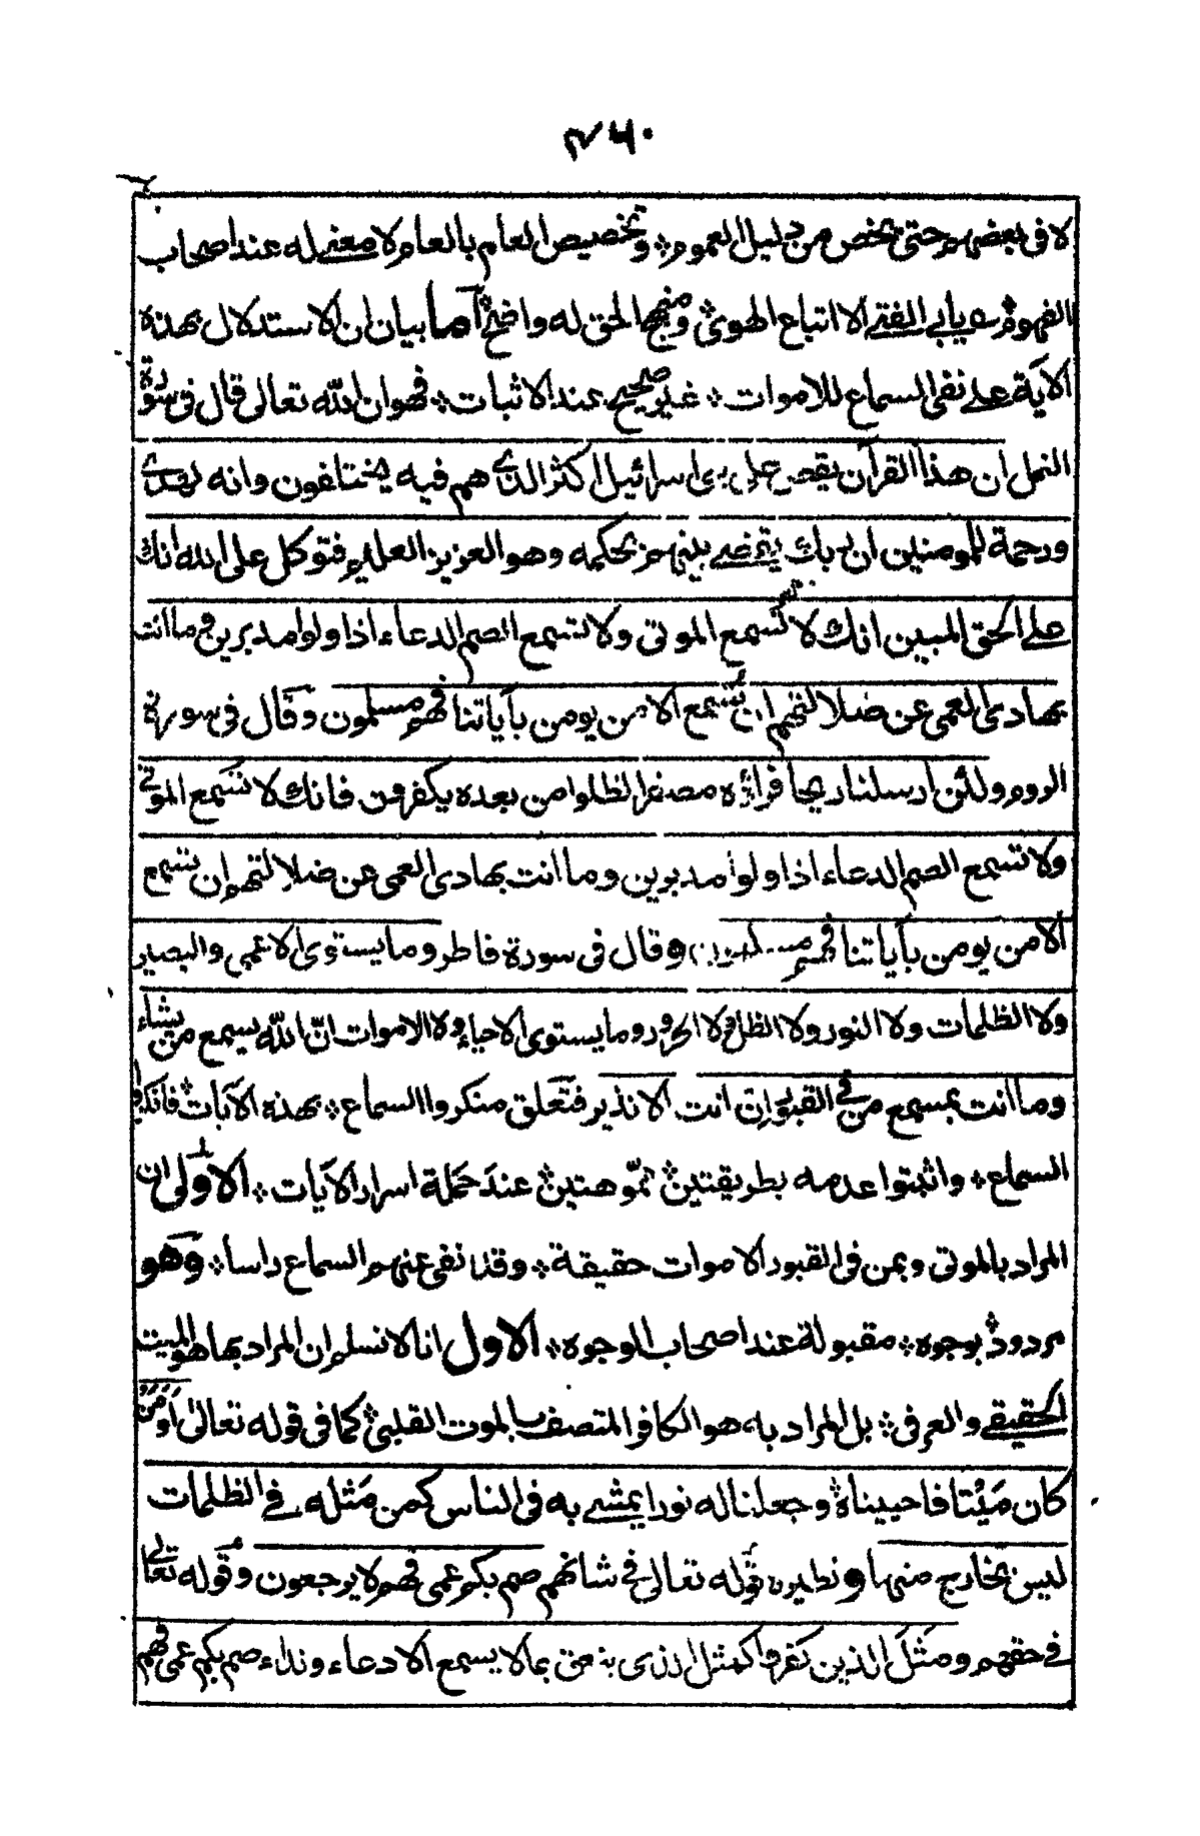 ٤٦٠
لا فى بعضهم حتى يخص من دليل العموم؞ وتخصيص العام بالعام لا معنى له عند اصحاب
الفهوم؞ يابى الفتى الا اتباع الهوى؞ ومنهج الحق له واضح؞ اما بيان ان الاستدلال بهذه
الآية على نفى السماع للاموات؞ غير صحيح عند الاثبات؞ فهو ان الله تعالى قال فى سورة
النمل ان هذا القرآن يقص على بنى اسرائيل اكثر الذى هم فيه يختلفون وانه لهدى
ورحمة للمومنين ان ربك يقضى بينهم بحكمه وهو العزيز العليم فتوكل على الله انك
على الحق المبين انك لا تسمع الموتى ولا تسمع الصم الدعاء اذا ولوا مدبرين وما انت
بهادى العمى عن ضلالتهم ان تسمع الا من يومن بآياتنا فهم مسلمون وقال فى سورة
الروم ولئن ارسلنا ريحا فراؤه مصفرا لظلوا من بعده يكفرون فانك لا تسمع الموتى
ولا تسمع الصم الدعاء اذا ولوا مدبرين وما انت بهادى العمى عن ضلالتهم ان تسمع
الا من يومن بآياتنا فهم مسلمون وقال فى سورة فاطر وما يستوى الاعمى والبصير
ولا الظلمات ولا النور ولا الظل ولا الحرور وما يستوى الاحياء ولا الاموات ان الله يسمع من يشاء
وما انت بمسمع من فى القبور ان انت الا نذير فتعلق منكروا السماع؞ بهذه الآيات؞ فانكروا
السماع؞ واثبتوا عدمه بطريقتين؞ مموهتين؞ عند حملة اسرار الآيات؞ الاولى ان
المراد بالموتى وبمن فى القبور الاموات حقيقة؞ وقد نفى عنهم السماع راسا؞ وهو
مردود؞ بوجوه؞ مقبولة عند اصحاب الوجوه؞ الاول انا لا نسلم ان المراد بها هو الميت
الحقيقى والعرفى؞ بل المراد به هو الكافر المتصف بالموت القلبى؞ كما فى قوله تعالى اومن
كان ميتا فاحييناه؞ وجعلنا له نورا يمشى به فى الناس كمن مثله فى الظلمات
ليس بخارج منها ونظيره قوله تعالى فى شانهم صم بكم عمى فهم لا يرجعون وقوله تعالى
فى حقهم ومثل الذين كفروا كمثل الذى ينعق بما لا يسمع الا دعاء ونداء صم بكم عمى فهم